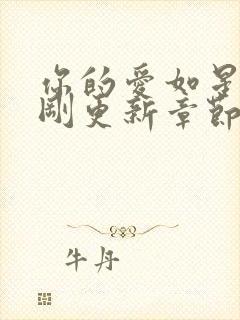 你的爱如星
刚更新章節
牛丹